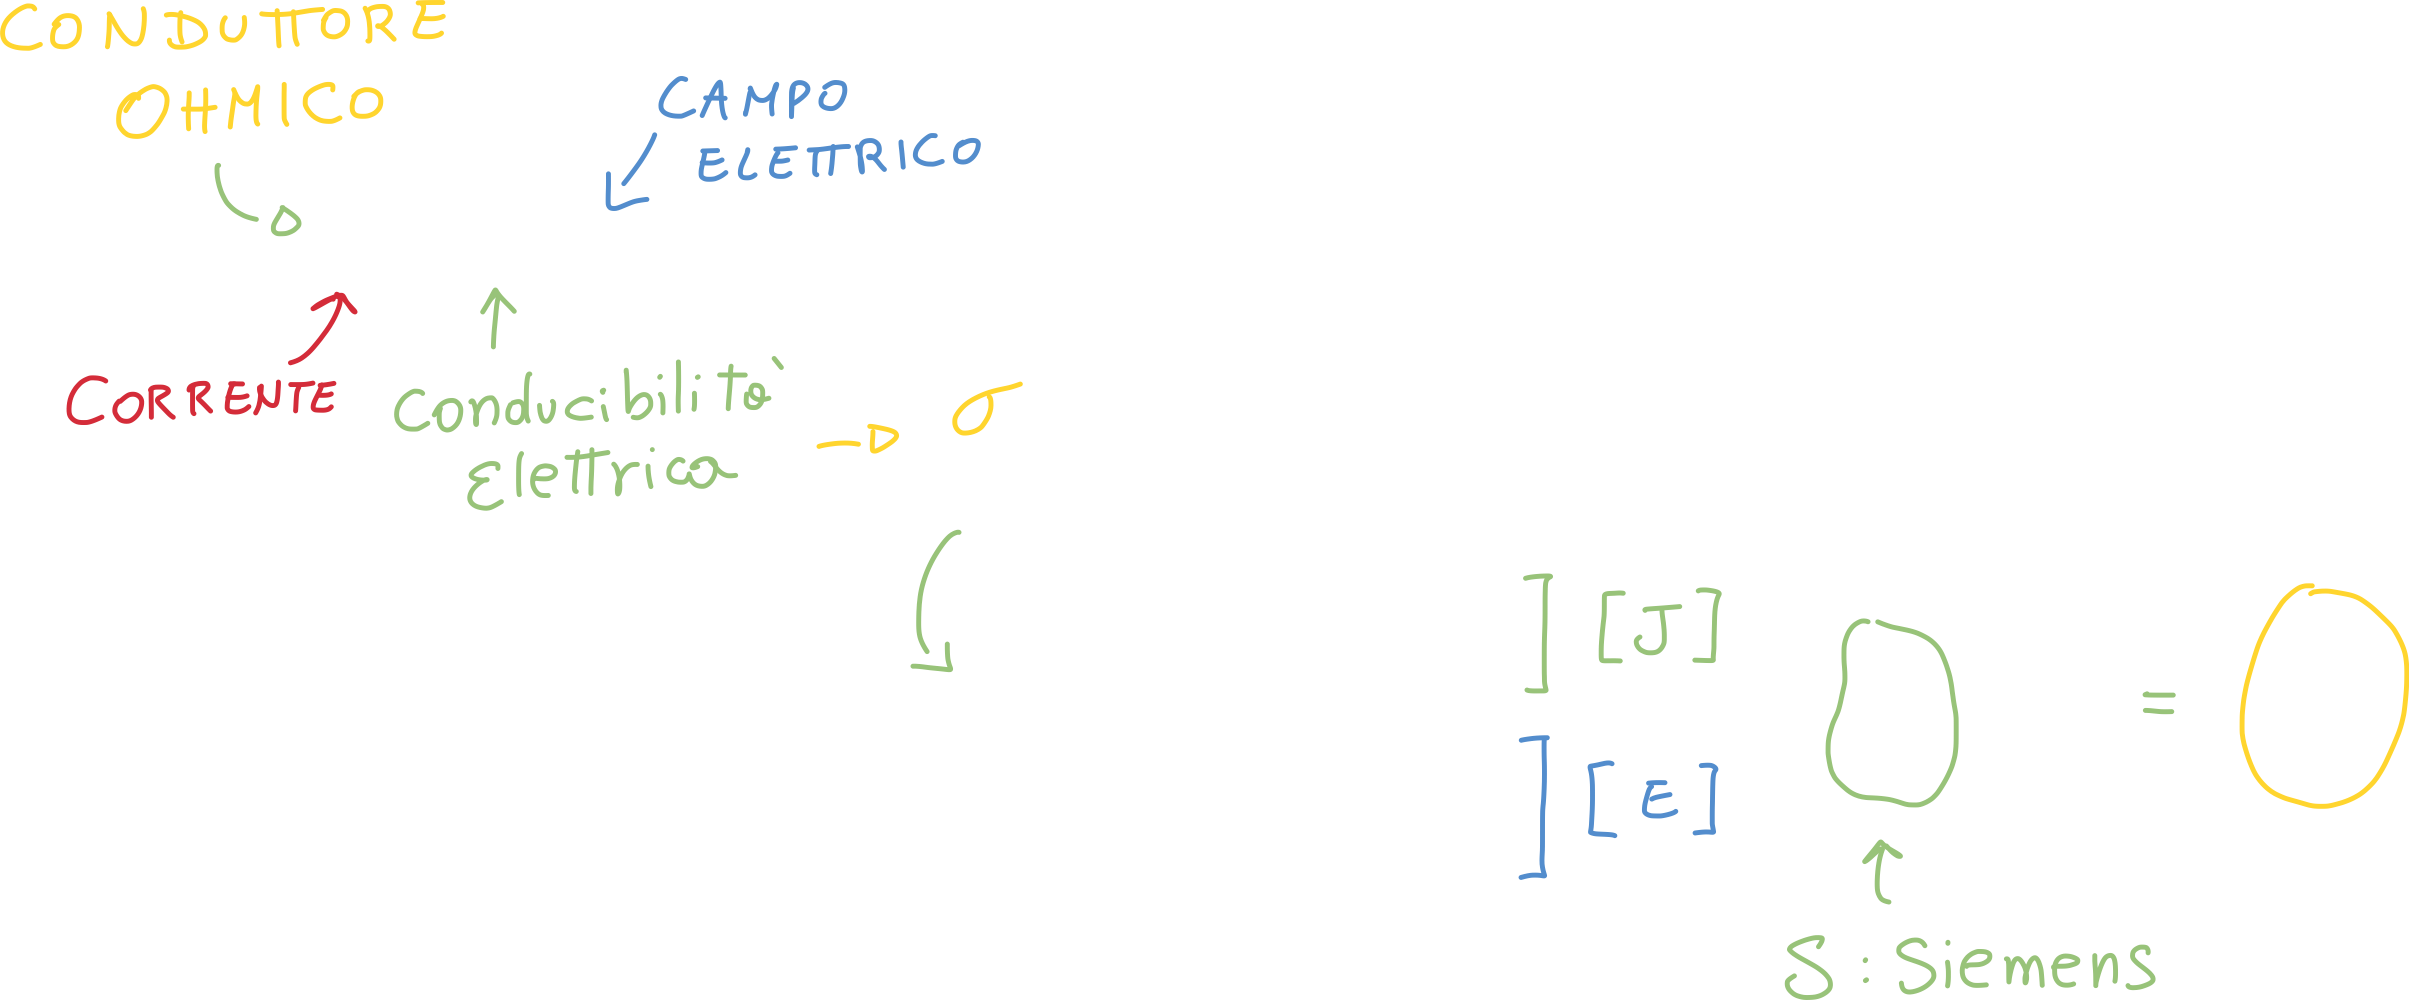 CONDUTTORE
OHMICO
CAMPO
ELETTRICO
CORRENTE
Conducibilità
Elettrica
σ
] [J]
=
] [E]
S : Siemens